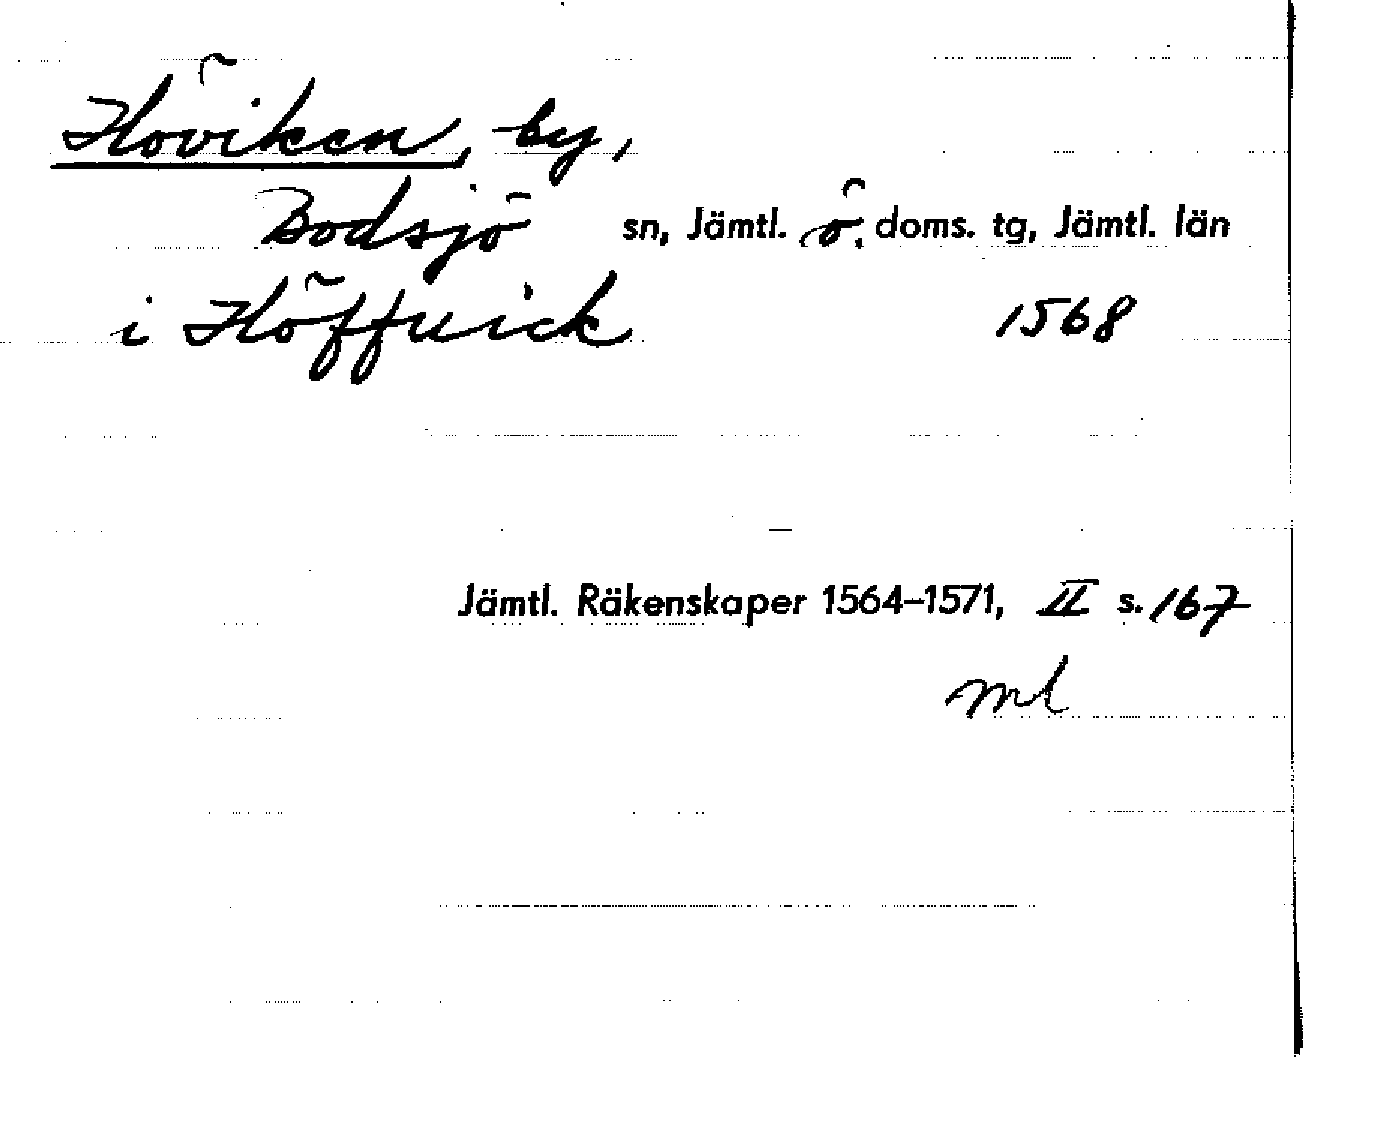 Höviken, by,
Bodsjö sn, Jämtl. ö. doms. tg, Jämtl. län
i Höffuick 1568
Jämtl. Räkenskaper 1564–1571, II s. 167
ml